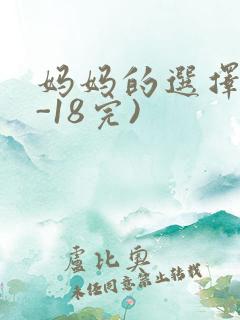 妈妈的選擇
-18完)
盧比奥
未经同意禁止转载